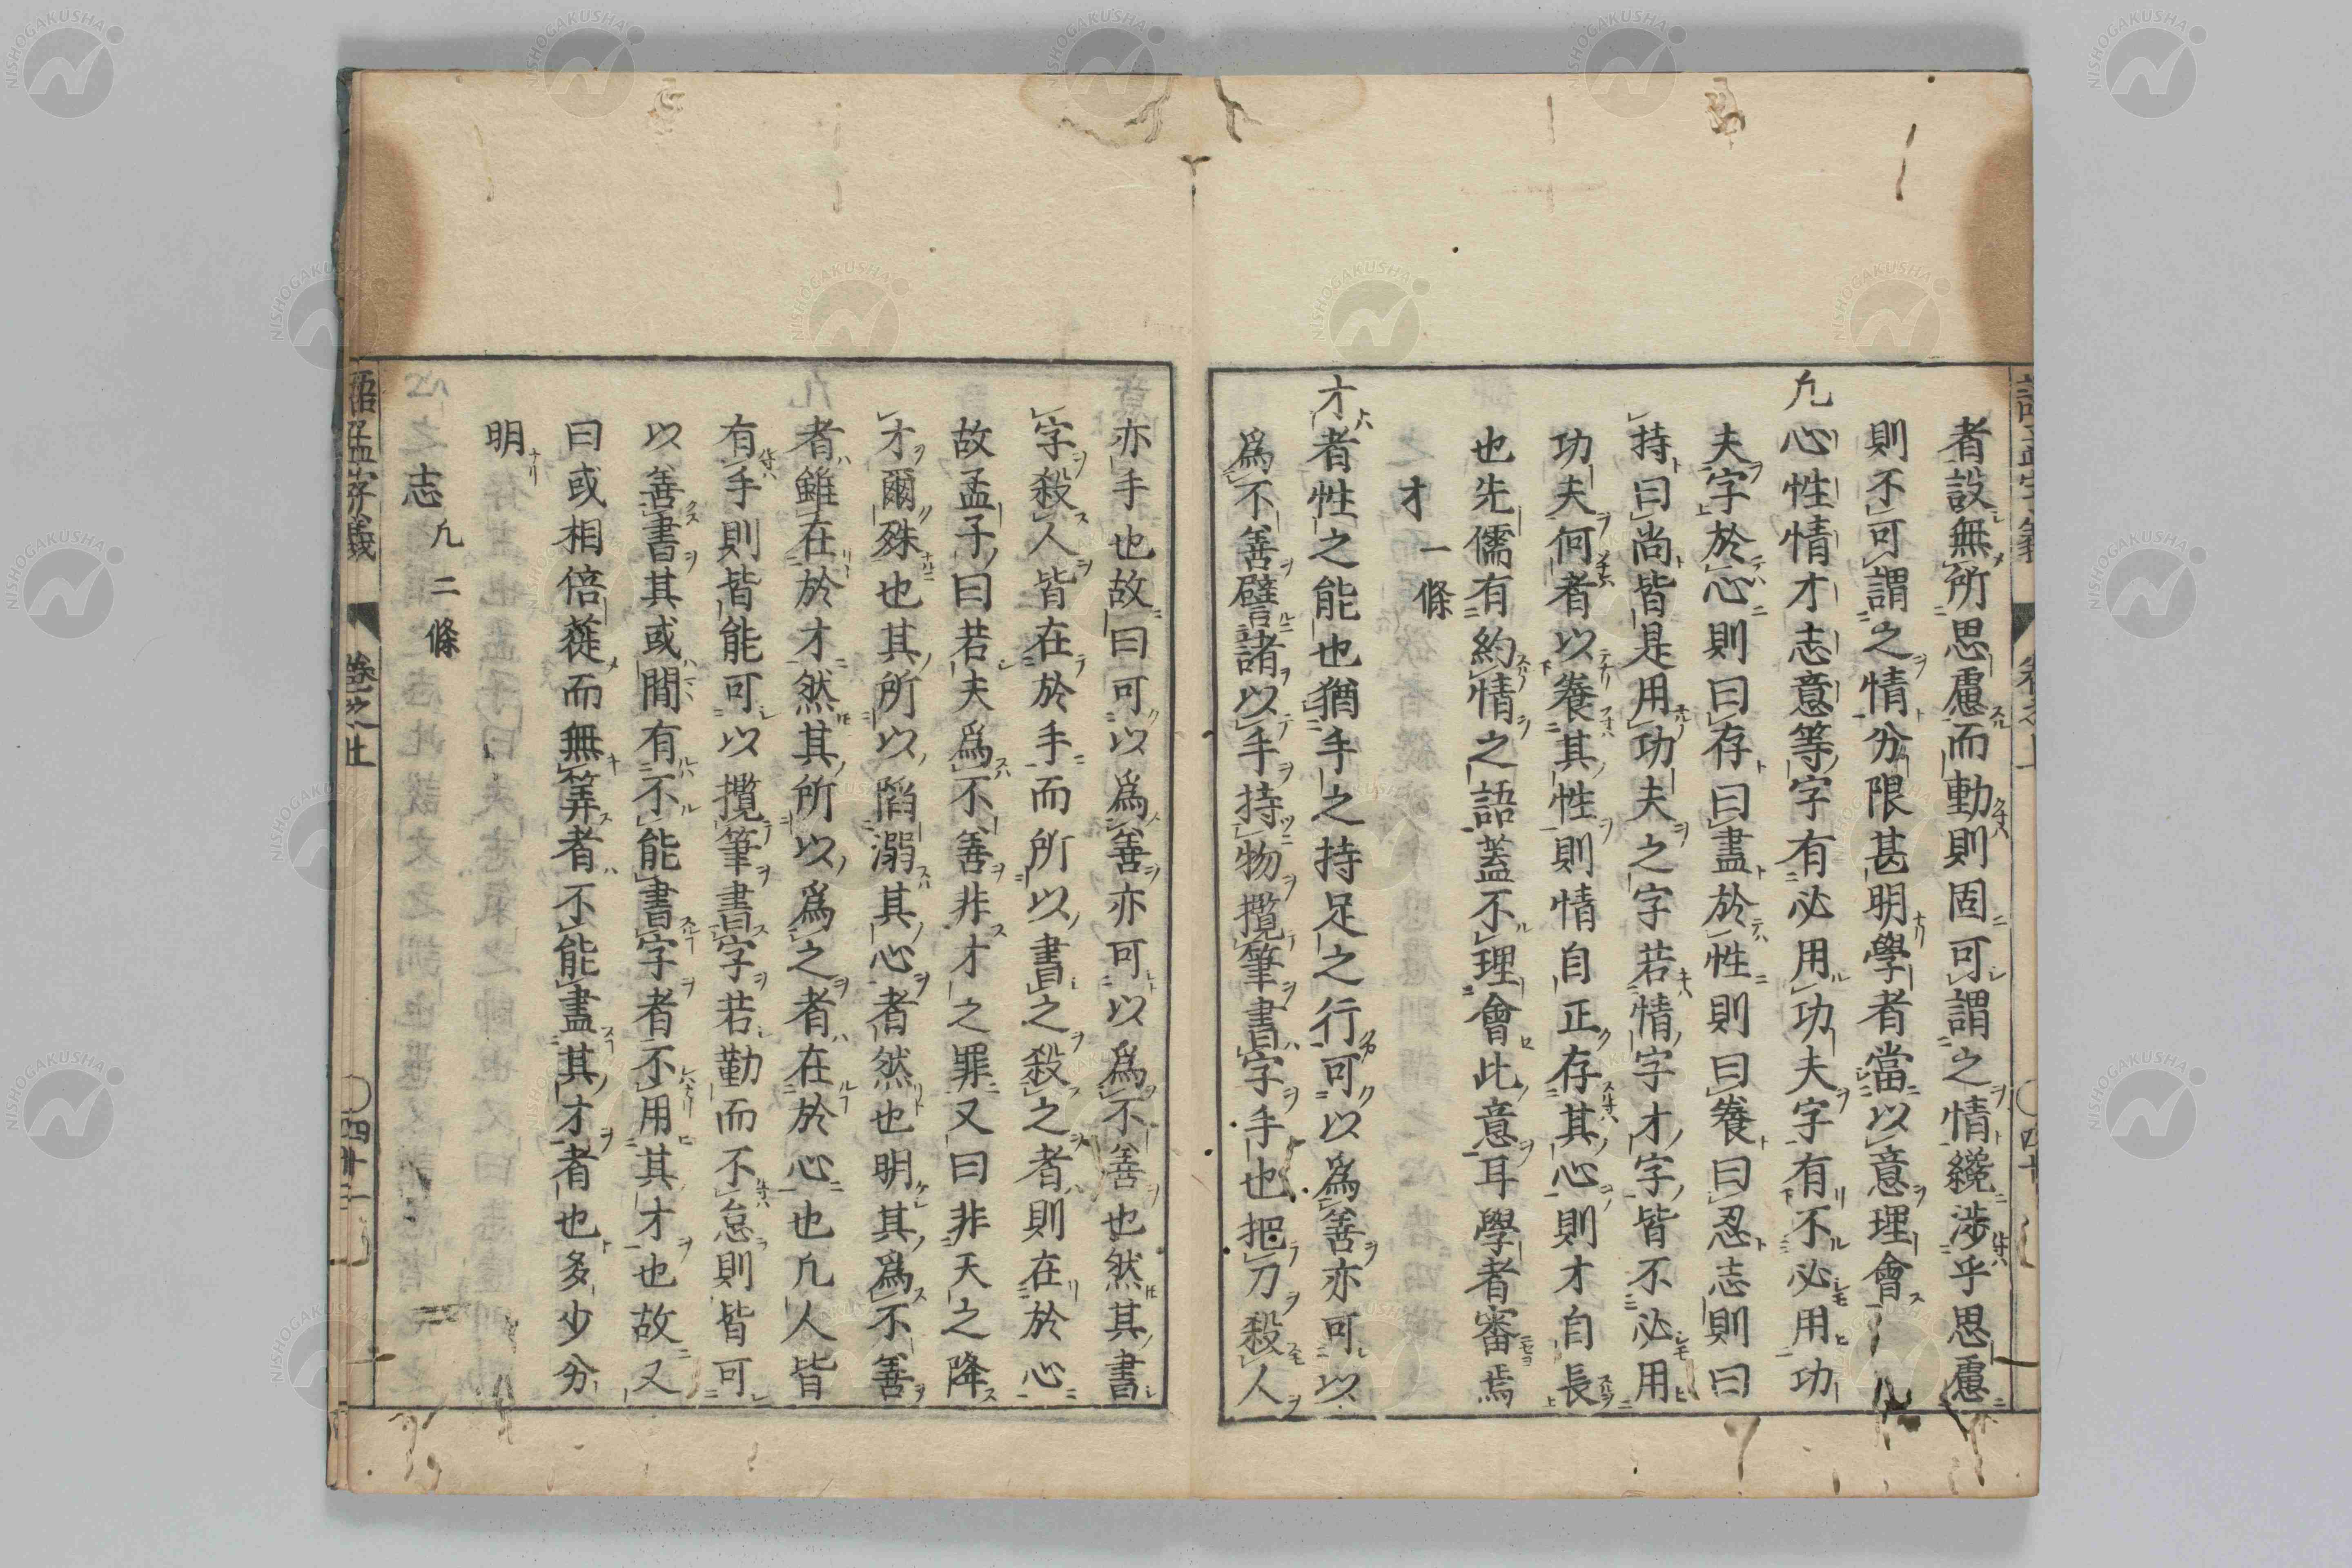 者設無所思慮而動則固可謂之情纔涉乎思慮
則不可謂之情分限甚明學者當以意理會
凢心性情才志意等字有必用功夫字有不必用功
夫字於心則曰存曰盡於性則曰養曰忍志則曰
持曰尚皆是用功夫之字若情字才字皆不必用
功夫何者以養其性則情自正存其心則才自長
也先儒有約情之語蓋不理會此意耳學者審焉
才 一條
才者性之能也猶手之持足之行可以爲善亦可以
爲不善譬諸以手持物攬筆書字手也把刀殺人
亦手也故曰可以爲善亦可以爲不善也然其書
字殺人皆在於手而所以書之殺之者則在於心
故孟子曰若夫爲不善非才之罪又曰非天之降
才爾殊也其所以陷溺其心者然也明其爲不善
者雖在於才然其所以爲之者在於心也凢人皆
有手則皆能可以攬筆書字若勤而不怠則皆可
以善書其或間有不能書字者不用其才也故又
曰或相倍蓰而無筭者不能盡其才者也多少分
明
志 凢二條
語孟字義 卷之上 四十一
NISHOGAKUSHA